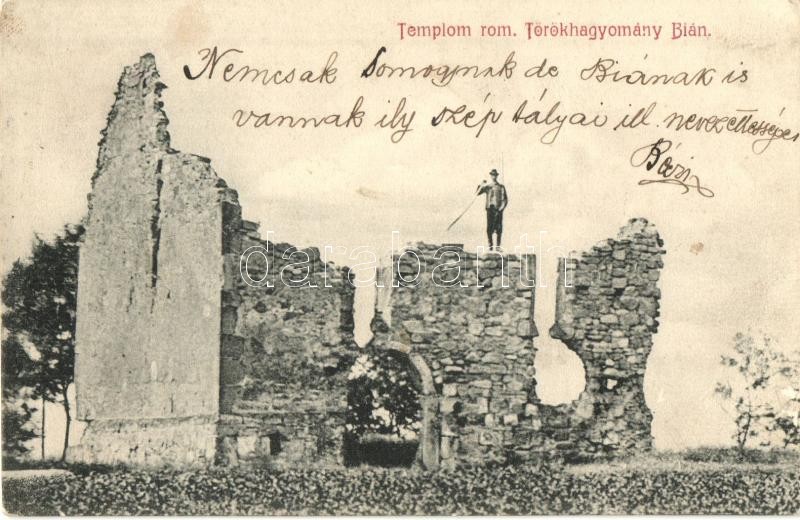 Templom rom. Törökhagyomány Bián.
Nemcsak Somogynak de Biának is
vannak ily szép tályai ill. nevezettességei
Bözsi
darabanth